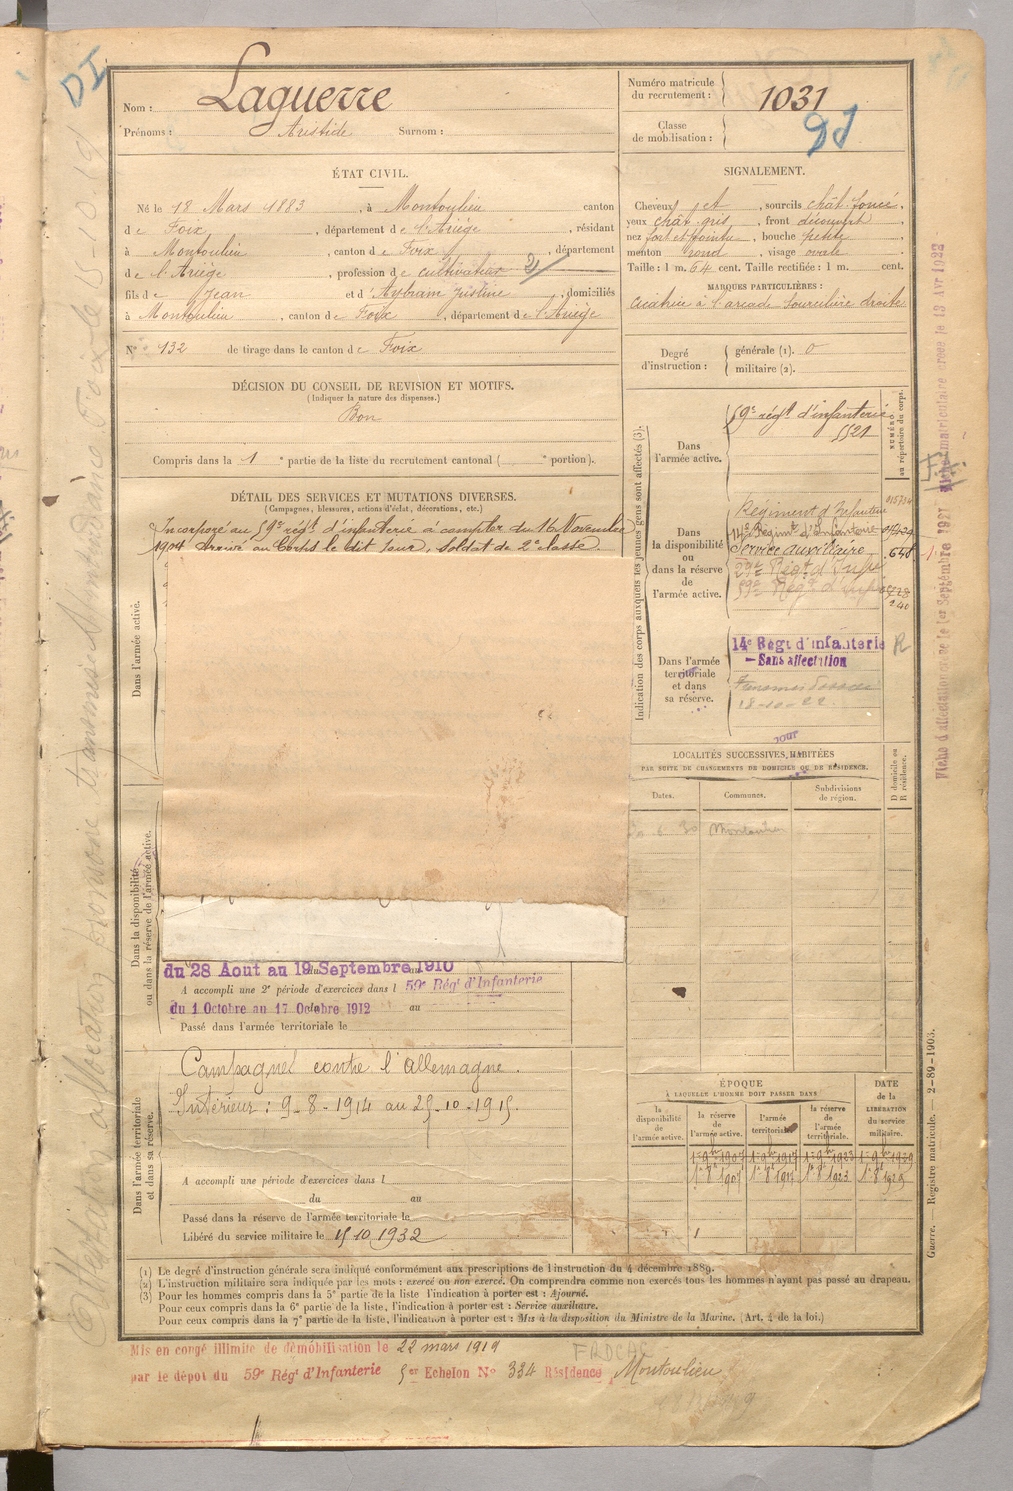 DI
Nom : Laguerre
Prénoms : Aristide Surnom :
Numéro matricule du recrutement : 1031
Classe de mobilisation :
ÉTAT CIVIL.
Né le 18 Mars 1883, à Montoulieu canton
de Foix, département de l'Ariège, résidant
à Montoulieu, canton de Foix, département
de l'Ariège, profession de cultivateur 2
fils de Jean et d' Aybram Justine, domiciliés
à Montoulieu, canton de Foix, département de l'Ariège
N° 132 de tirage dans le canton de Foix
SIGNALEMENT.
Cheveux jet, sourcils chât. foncé,
yeux chât. gris, front découvert,
nez fort et pointu, bouche petite,
menton rond, visage ovale.
Taille : 1 m. 64 cent. Taille rectifiée : 1 m. cent.
MARQUES PARTICULIÈRES :
cicatrice à l'arcade sourcilière droite
Degré d'instruction :
générale (1). 0
militaire (2).
DÉCISION DU CONSEIL DE REVISION ET MOTIFS.
(Indiquer la nature des dispenses.)
Bon
Compris dans la 1 e partie de la liste du recrutement cantonal ( e portion).
DÉTAIL DES SERVICES ET MUTATIONS DIVERSES.
(Campagnes, blessures, actions d'éclat, décorations, etc.)
Incorporé au 59e régt d'infanterie à compter du 16 Novembre
1904 arrivé au Corps le dit jour, soldat de 2e classe.
Dans l'armée active.
Dans la disponibilité ou dans la réserve de l'armée active.
du 28 Aout au 19 Septembre 1910
A accompli une 2e période d'exercices dans l 59e Régt d'Infanterie
du 1 Octobre au 17 Octobre 1912 au
Passé dans l'armée territoriale le
Dans l'armée territoriale et dans sa réserve.
Campagnes contre l'allemagne.
Intérieur : 9-8-1914 au 25-10-1915.
A accompli une période d'exercices dans l
du au
Passé dans la réserve de l'armée territoriale le
Libéré du service militaire le 15 10 1932
Indication des corps auxquels les jeunes gens sont affectés (3).
NUMÉRO au répertoire du corps.
Dans l'armée active.
59e régt d'infanterie
5521
Dans la disponibilité ou dans la réserve de l'armée active.
Régiment d'Infanterie
Régimt d'Infanterie
Service auxiliaire 648
59e Régt d'Infie
Dans l'armée territoriale et dans sa réserve.
14e Régt d'infanterie R
Sans affectation
18-10-22
LOCALITÉS SUCCESSIVES HABITÉES
PAR SUITE DE CHANGEMENTS DE DOMICILE OU DE RÉSIDENCE.
Dates. Communes. Subdivisions de région. D domicile ou R résidence.
Montoulieu
ÉPOQUE
À LAQUELLE L'HOMME DOIT PASSER DANS
DATE de la LIBÉRATION du service militaire.
la disponibilité de l'armée active. la réserve de l'armée active. l'armée territoriale. la réserve de l'armée territoriale.
1er 9bre 1907 1er 9bre 1917 1er 9bre 1923 1er 9bre 1929
1er 8bre 1907 1er 8bre 1917 1er 8bre 1923 1er 8bre 1929
(1) Le degré d'instruction générale sera indiqué conformément aux prescriptions de l'instruction du 4 décembre 1889.
(2) L'instruction militaire sera indiquée par les mots : exercé ou non exercé. On comprendra comme non exercés tous les hommes n'ayant pas passé au drapeau.
(3) Pour les hommes compris dans la 5e partie de la liste l'indication à porter est : Ajourné.
Pour ceux compris dans la 6e partie de la liste, l'indication à porter est : Service auxiliaire.
Pour ceux compris dans la 7e partie de la liste, l'indication à porter est : Mis à la disposition du Ministre de la Marine. (Art. 4 de la loi.)
Mis en congé illimité de démobilisation le 22 mars 1919
par le dépôt du 59e Régt d'Infanterie 5er Echelon N° 334 Résidence Montoulieu
Guerre. — Registre matricule. — 2-89-1903.
Fiche d'affectation créée le 1er Septembre 1921 Fiche matriculaire créée le 13 Avr 1922